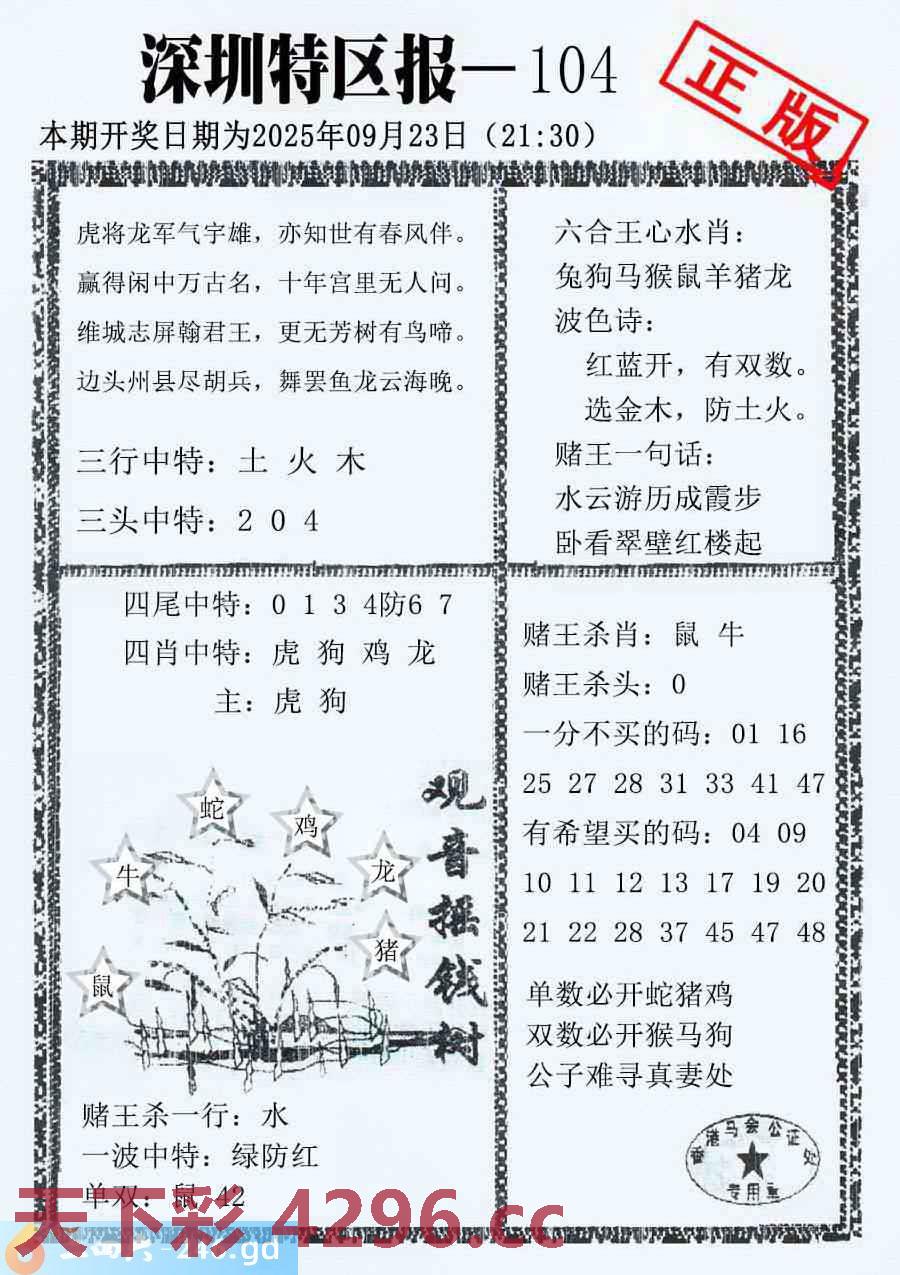 深圳特区报—104
正版
本期开奖日期为2025年09月23日（21:30）
虎将龙军气宇雄，亦知世有春风伴。
赢得闲中万古名，十年宫里无人问。
维城志屏翰君王，更无芳树有鸟啼。
边头州县尽胡兵，舞罢鱼龙云海晚。
三行中特：土 火 木
三头中特：2 0 4
六合王心水肖：
兔狗马猴鼠羊猪龙
波色诗：
红蓝开，有双数。
选金木，防土火。
赌王一句话：
水云游历成霞步
卧看翠壁红楼起
四尾中特：0 1 3 4防6 7
四肖中特：虎 狗 鸡 龙
主：虎 狗
蛇
鸡
牛
龙
猪
鼠
观音摇钱树
赌王杀一行：水
一波中特：绿防红
单双：鼠 42
赌王杀肖：鼠 牛
赌王杀头：0
一分不买的码：01 16
25 27 28 31 33 41 47
有希望买的码：04 09
10 11 12 13 17 19 20
21 22 28 37 45 47 48
单数必开蛇猪鸡
双数必开猴马狗
公子难寻真妻处
香港马会公证处
专用章
天下彩 4296.cc